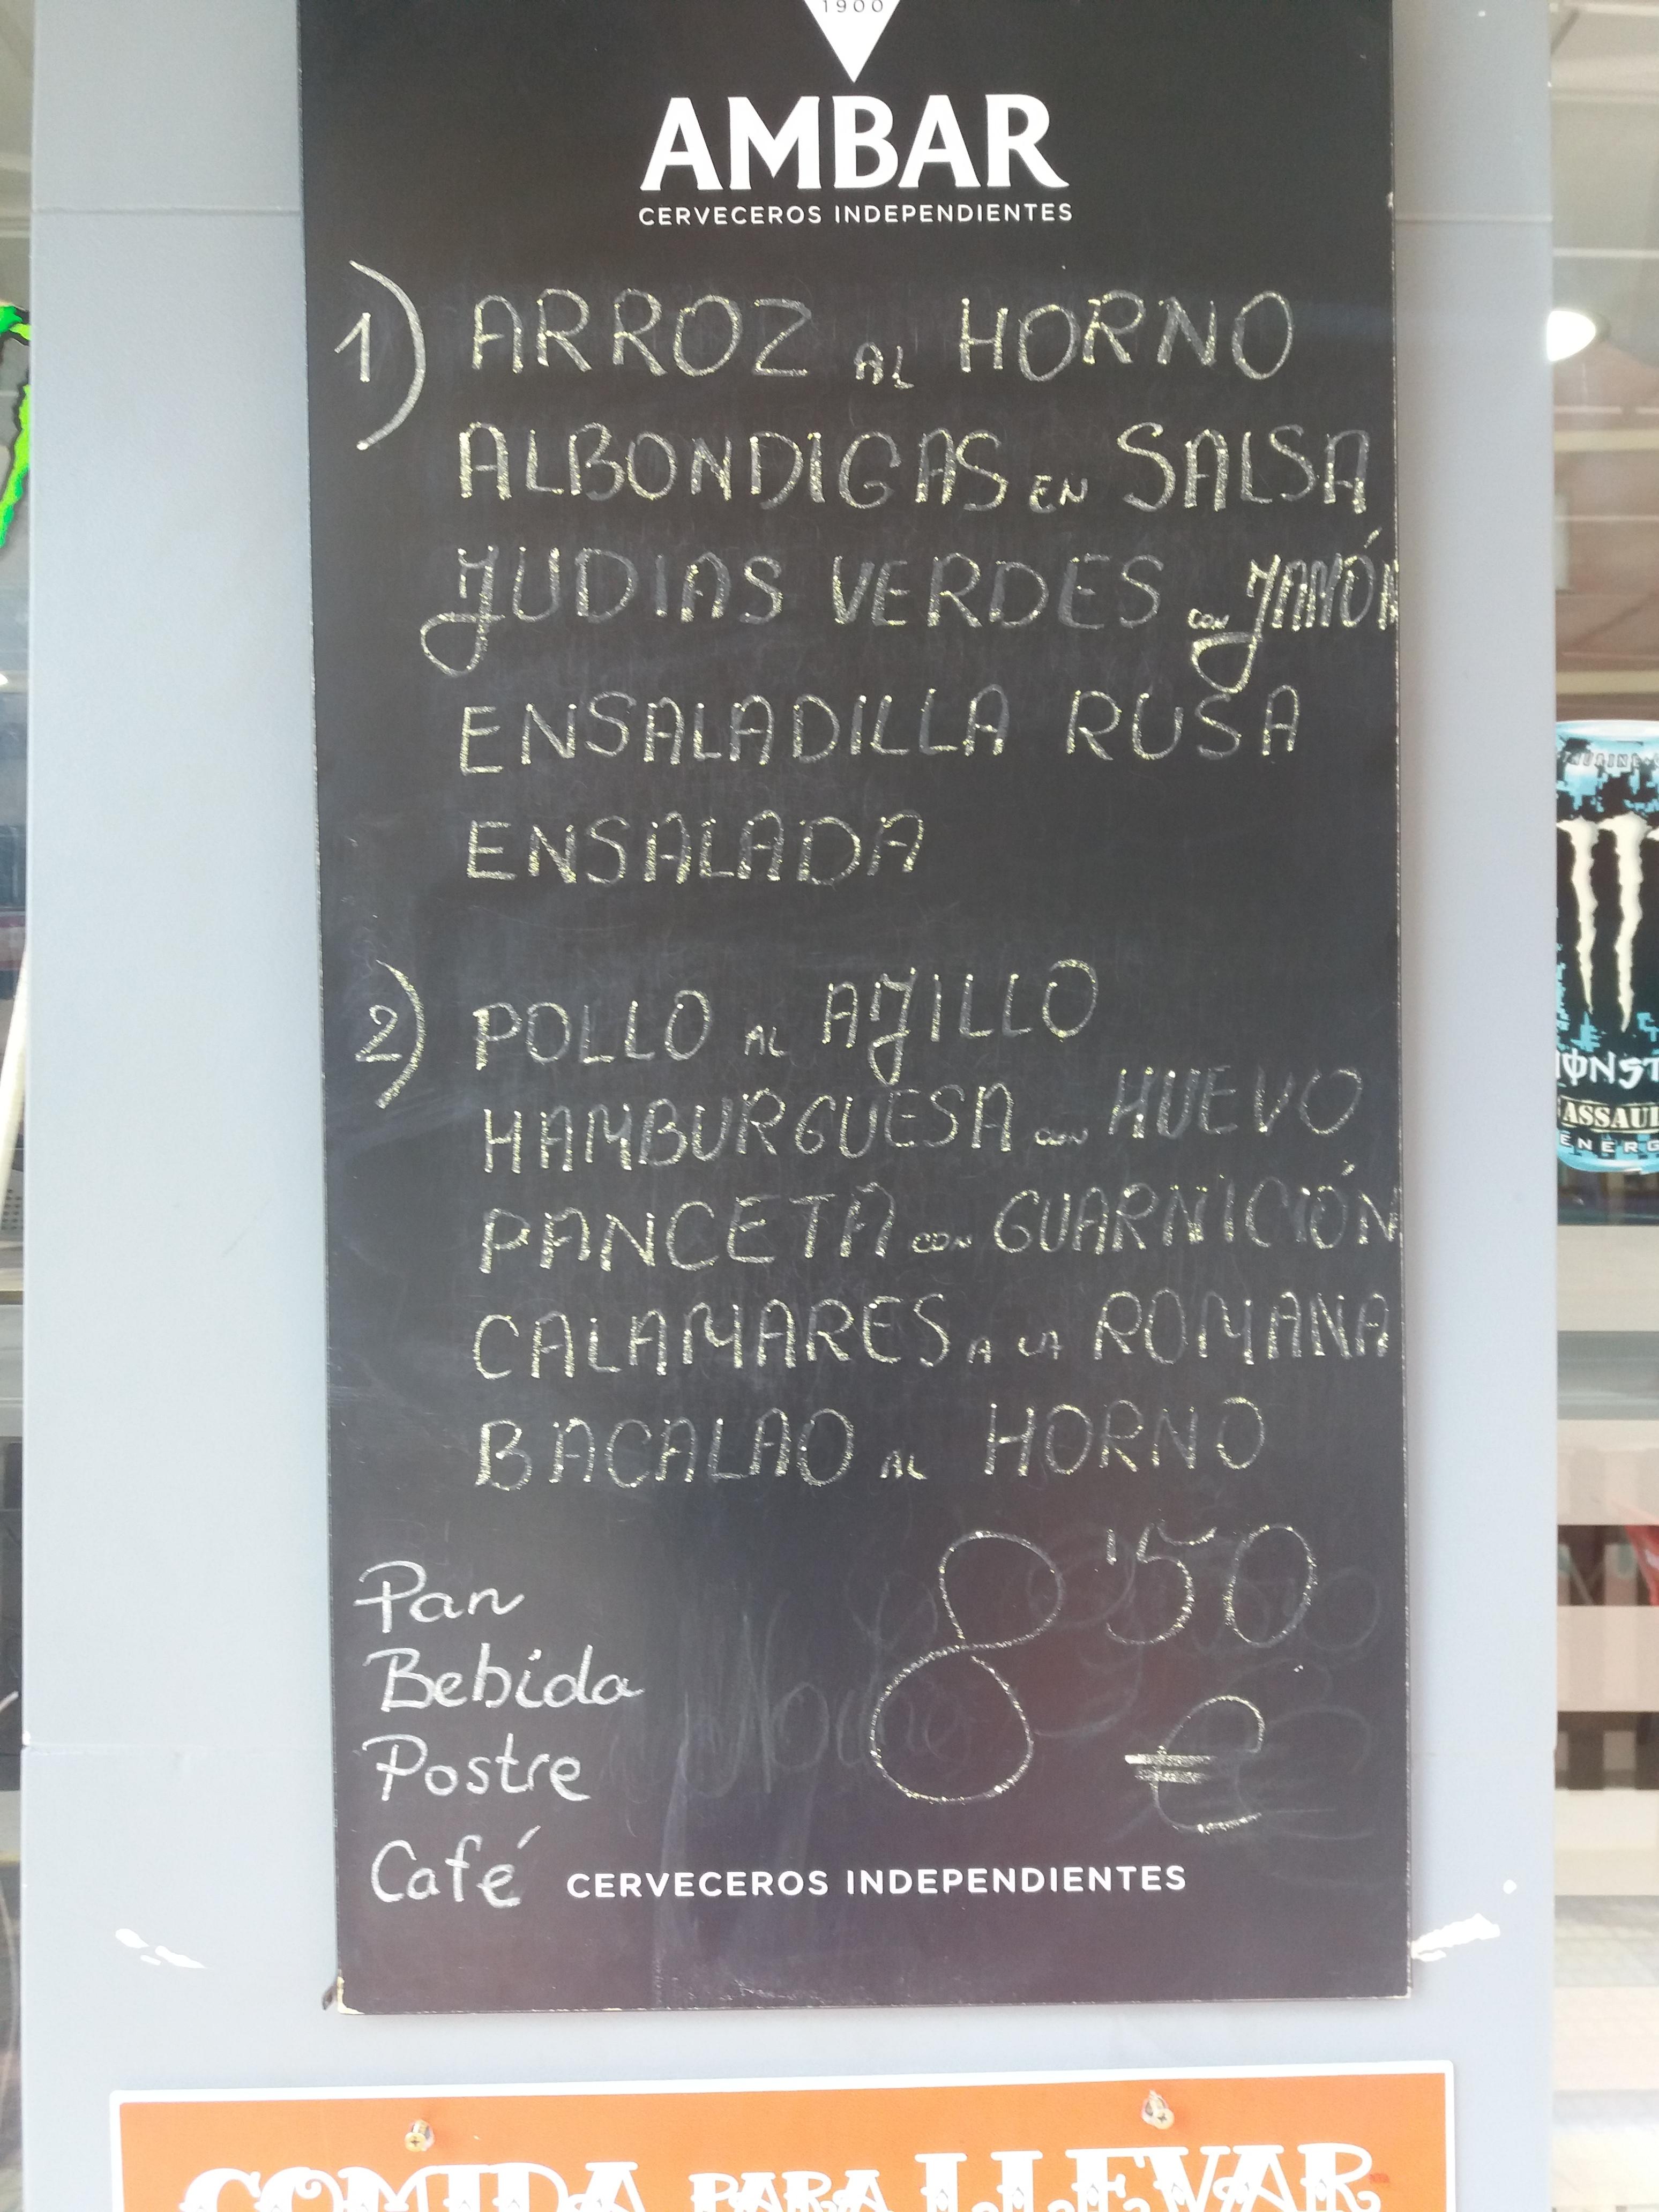 1900
AMBAR
CERVECEROS INDEPENDIENTES
1) ARROZ AL HORNO
ALBONDIGAS EN SALSA
JUDIAS VERDES CON JAMÓN
ENSALADILLA RUSA
ENSALADA
2) POLLO AL AJILLO
HAMBURGUESA CON HUEVO
PANCETA CON GUARNICIÓN
CALAMARES A LA ROMANA
BACALAO AL HORNO
8'50
€
Pan
Bebida
Postre
Café
CERVECEROS INDEPENDIENTES
COMIDA PARA LLEVAR
ASSAU
ENERG